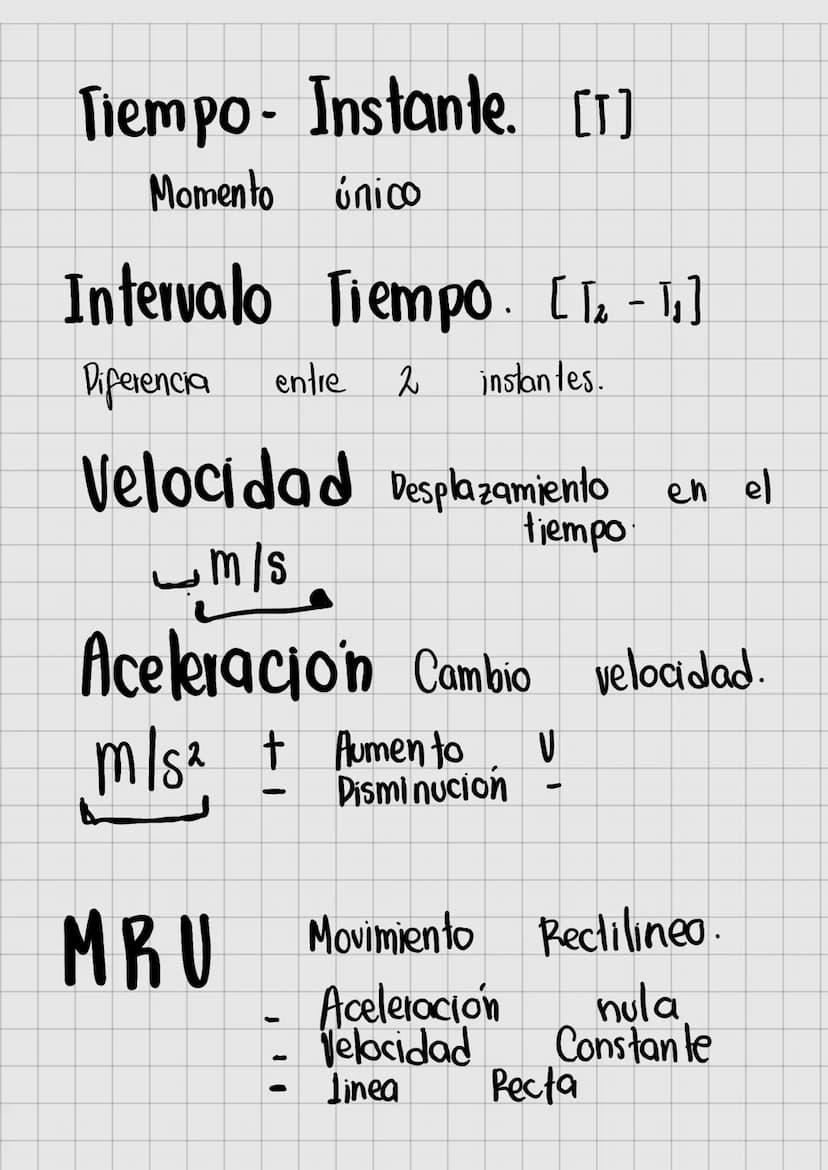 Tiempo - Instante. [T]
Momento único
Intervalo Tiempo. [T₂ - T₁]
Diferencia entre 2 instantes.
Velocidad Desplazamiento en el
tiempo.
m/s
Aceleración Cambio velocidad.
m/s² + Aumento V
- Disminución -
MRU Movimiento Rectilineo.
- Aceleración nula
- Velocidad Constante
- linea Recta